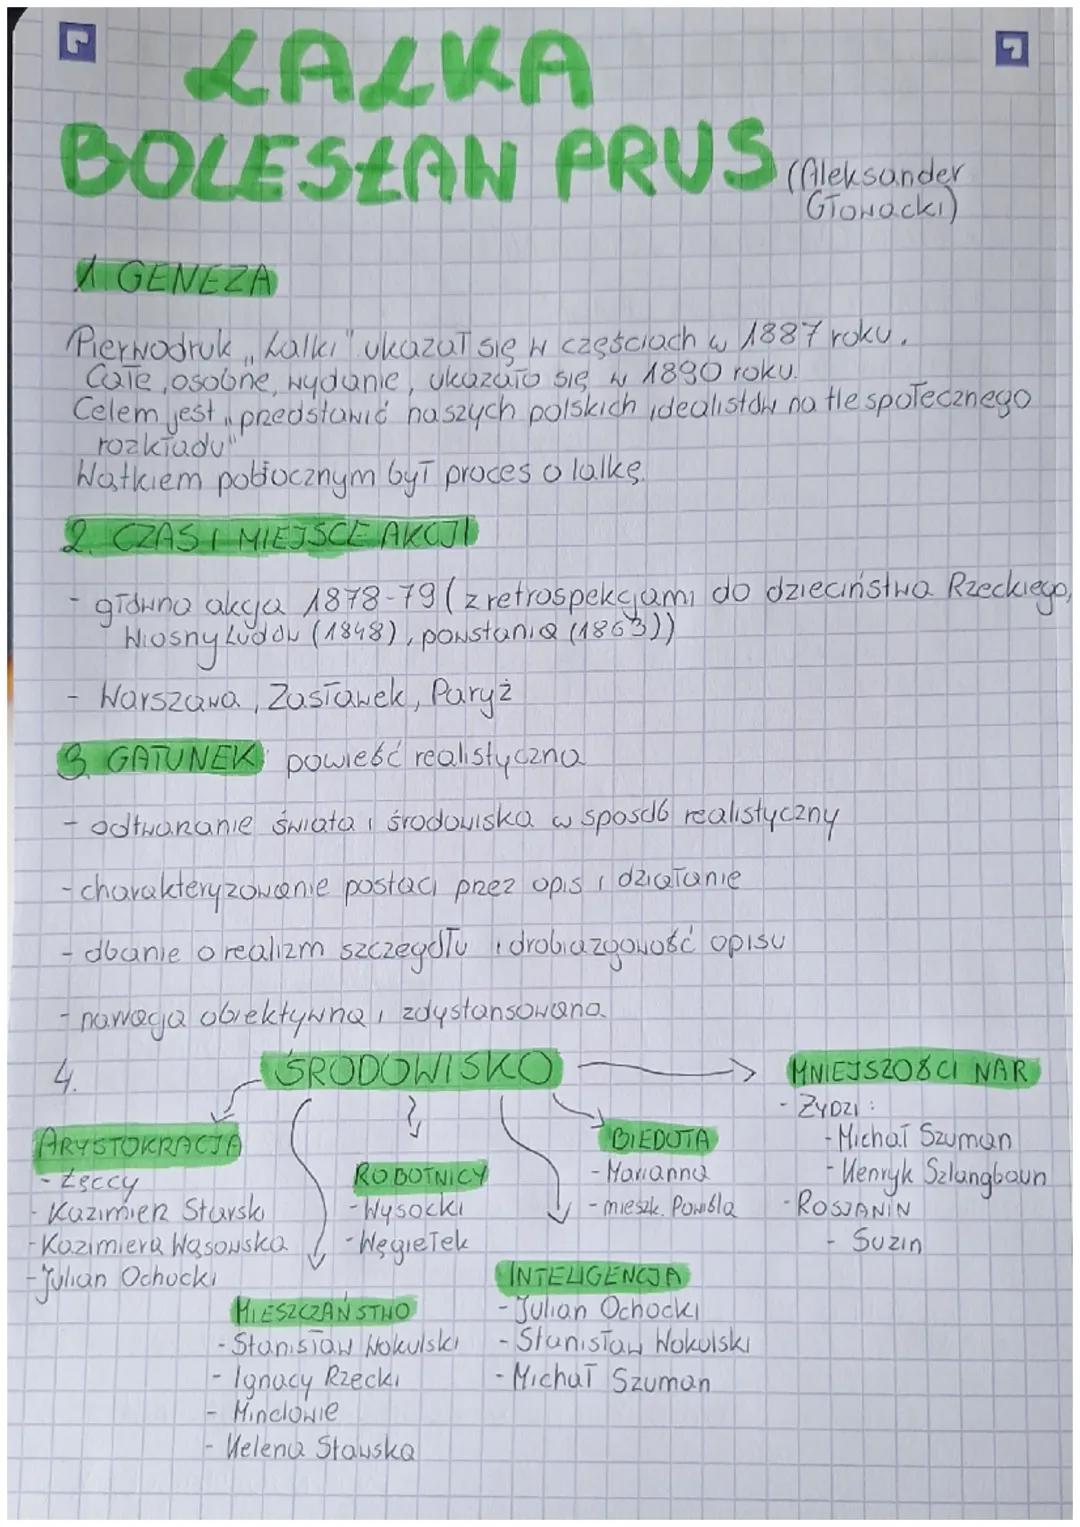 LALKA
BOLESŁAW PRUS (Aleksander
Głowacki)
1. GENEZA
Pierwodruk „Lalki" ukazał się w częściach w 1887 roku.
Całe, osobne, wydanie, ukazało się w 1890 roku.
Celem jest „przedstawić naszych polskich idealistów na tle społecznego
rozkładu"
Wątkiem pobocznym był proces o lalkę.
2. CZAS I MIEJSCE AKCJI
- główna akcja 1878-79 (z retrospekcjami do dzieciństwa Rzeckiego,
Wiosny Ludów (1848), powstania (1863))
- Warszawa, Zasławek, Paryż
3. GATUNEK: powieść realistyczna
- odtwarzanie świata i środowiska w sposób realistyczny
- charakteryzowanie postaci przez opis i działanie
- dbanie o realizm szczegółu i drobiazgowość opisu
- narracja obiektywna i zdystansowana
4. ŚRODOWISKO
MNIEJSZOŚCI NAR
- ŻYDZI:
- Michał Szuman
- Henryk Szlangbaun
- ROSJANIN
- Suzin
ARYSTOKRACJA
- Łęccy
- Kazimierz Starski
- Kazimiera Wąsowska
- Julian Ochocki
ROBOTNICY
- Wysocki
- Węgiełek
BIEDOTA
- Marianna
- mieszk. Powiśla
MIESZCZAŃSTWO
- Stanisław Wokulski
- Ignacy Rzecki
- Minclowie
- Helena Stawska
INTELIGENCJA
- Julian Ochocki
- Stanisław Wokulski
- Michał Szuman